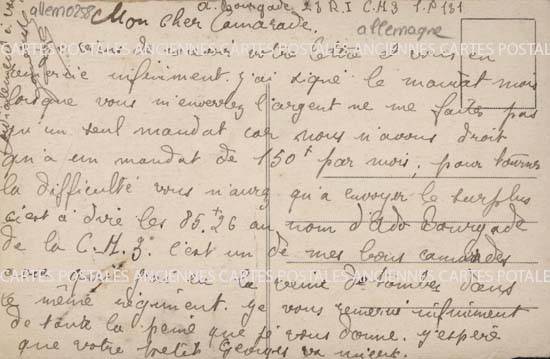 allem0258
allemagne
A. Bourgade 23 R.I C.H.3 S.P 131
Mon cher Camarade.
Je viens de recevoir votre lettre et vous en
remercie infiniment. J'ai signé le mandat mois
lorsque vous m'enverrez l'argent ne me faites pas
qu'un seul mandat car nous n'avons droit
qu'a un mandat de 150f par mois, pour tourner
la difficulté vous n'aurez qu'a envoyer le surplus
c'est à dire les 85f26 au nom d'Ado Bourgade
de la C.H.3. c'est un de mes bons camarades
que j'ai eu la veine de tomber dans
le même régiment. Je vous remercie infiniment
de toute la peine que je vous donne. J'espère
que votre petit Georges va mieux.
CARTES POSTALES ANCIENNES CARTES POSTALES
CARTES POSTALES ANCIENNES CARTES POSTALES ANCIENNES CARTES POSTALES